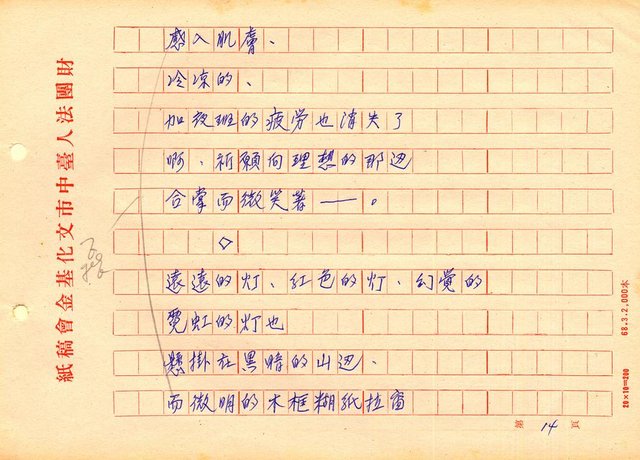 感入肌膚、
冷凉的、
加夜班的疲劳也消失了
啊、祈願向理想的那边
合掌而微笑著——。
◇
遠遠的灯、红色的灯、幻覚的
霓虹的灯也
懸掛在黒暗的山边、
而微明的木框糊紙拉窗
第 14 頁
財團法人臺中市文化基金會稿紙
68.3.2,000本
20×10=200